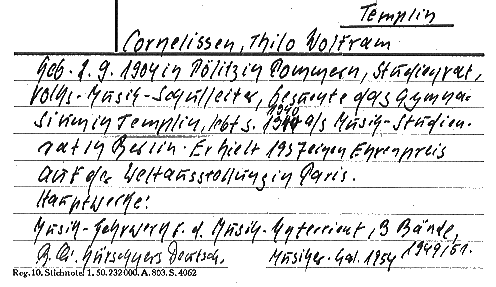 Templin
Cornelissen, Thilo Wolfram
Geb. 2. 9. 1904 in Pölitz in Pommern, Studienrat,
Volks-Musik-Schulleiter, besuchte das Gymna-
sium in Templin, lebt s. 1940 als Musik-Studien-
rat in Berlin. Erhielt 1937 einen Ehrenpreis
auf der Weltausstellung in Paris.
Hauptwerke:
Musik-Lehrwerk f. d. Musik-Unterricht, 3 Bände,
1949/51.
Kürschners Deutsch. Musiker-Kal. 1954
Reg. 10. Stichnote/ 1. 50. 232 000. A. 803. S. 4062